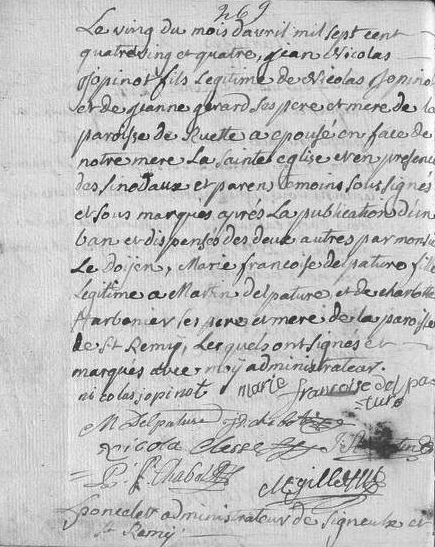 269
Le vingt du mois davril mil sept cent
quatre ving et quatre, Jean Nicolas
Jopinot fils legitime de Nicolas Jopinot
et de Jeanne gerard ses pere et mere de la
paroisse de Ruette a epousé en face de
notre mere La sainte eglise et en presence
des sinodaux et parens temoins sous signés
et sous marqués aprés La publication d'un
ban et dispensés des deux autres par monsieur
Le Doijen, Marie francoise delpature fille
legitime a Martin delpature et de charlotte
harbonier ses pere et mere de la paroisse
de St Remy, Lesquels ont signés et
marqués avec moy administrateur.
nicolas jopinot marie francoise del pa=
=ture
M Delpature
Nicola Clesse
P: f: Chabot
M gillet
Poncelet administrateur de signeulx et
St Remy.